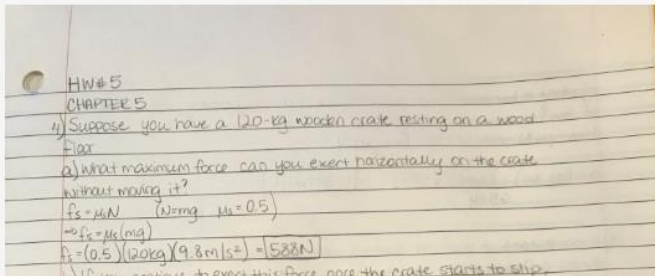 HW#5
CHAPTER 5
4) Suppose you have a 120-kg wooden crate resting on a wood
floor
a) what maximum force can you exert horizontally on the crate
without moving it?
fs=μsN (N=mg μs=0.5)
→fs=μs(mg)
fs=(0.5)(120kg)(9.8m/s²)=588N
continue to exert this force once the crate starts to slip,